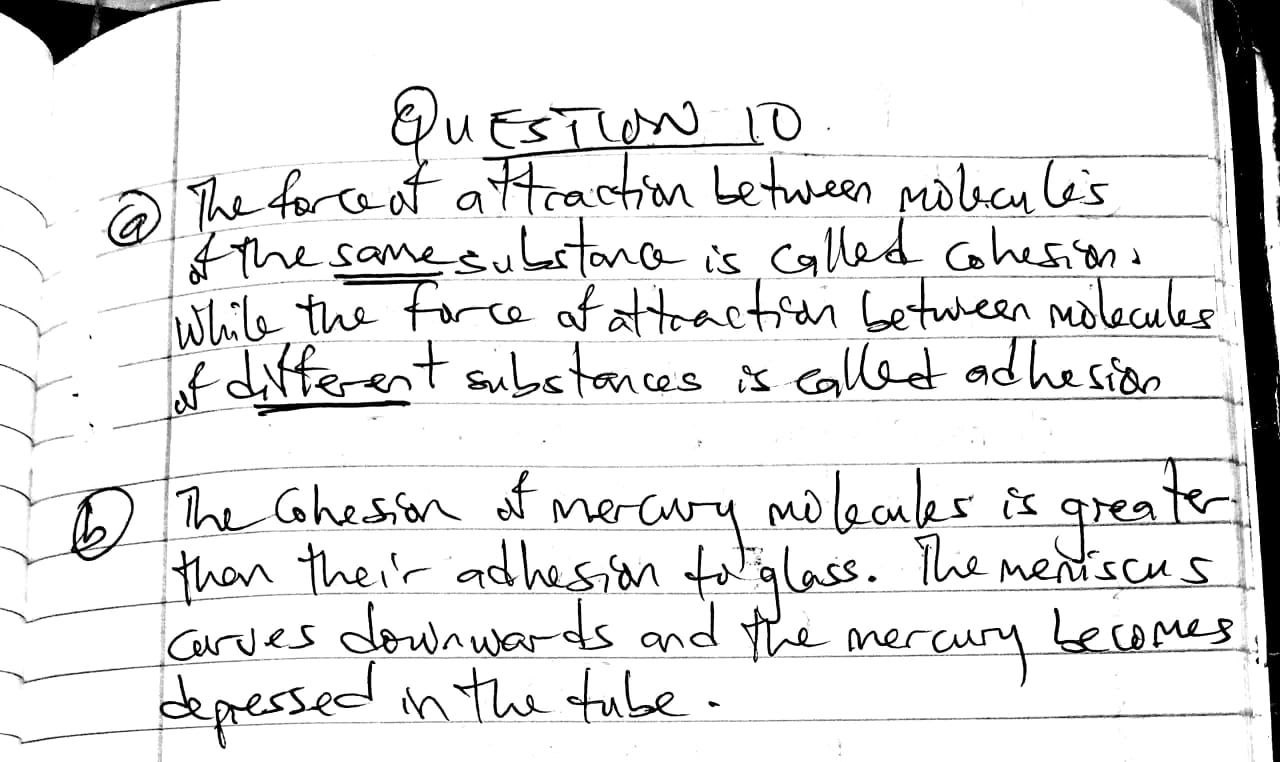 QUESTION 10.
(a) The force of attraction between molecules
of the same substance is called cohesion.
While the force of attraction between molecules
of different substances is called adhesion
(b) The Cohesion of mercury molecules is greater
than their adhesion to glass. The meniscus
carves downwards and the mercury becomes
depressed in the tube.